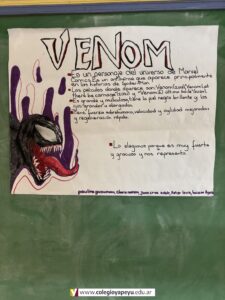 VENOM
Es un personaje del universo de Marvel
Comics. Es un antiheroe que aparece principalmente
en las historias de Spider-Man.
Las peliculas donde aparece son: Venom (2018), Venom: Let
there be carnage (2021) y "Venom: El último baile" (2024).
Es grande y musculoso, tiene la piel negra brillante y los
ojos grandes y alargados.
Tiene fuerza sobrehumana, velocidad y agilidad mejoradas
y regeneración rápida.
Lo elegimos porque es muy fuerte
y gracioso y nos representa
www.colegioyapeyu.edu.ar